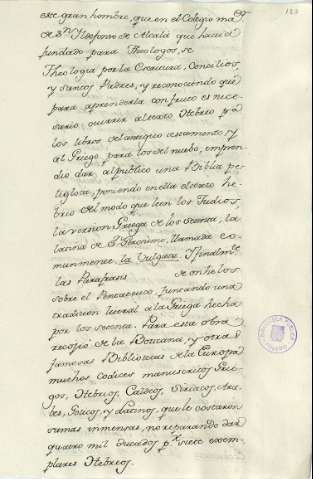 este gran hombre, que en el Colegio ma
de Sn. Ildefonso de Alcalá que havia
fundado para Theologos, se
Theologia por la Escritura, Concilios
y Santos Padres, y reconociendo que
para aprenderla con fruto es nece
sario ocurrir al texto Hebreo pa
los libros del antiguo testamento, y
al Griego para los del nuebo, empren
dio dar al publico una Biblia po
liglota, poniendo en ella el texto he
breo del modo que leen los Judios,
la version Griega de los setenta, la
latina de S. Geronimo, llamada co
munmente la Vulgata. Y finalmte.
las Parafrasis de Onkelos
sobre el Pentateuco, juntando una
traduccion literal a la Griega hecha
por los setenta. Para esta obra
recogio de la Boticana, y otras
famosas Bibliotecas de la Europa
muchos codices manuscritos Grie
gos, Hebreos, Caldeos, Siriacos, Ara
bes, Goticos, y Latinos, que le costaron
sumas inmensas, no reparando dar
quatro mil ducados pr. siete exem
plares Hebreos.